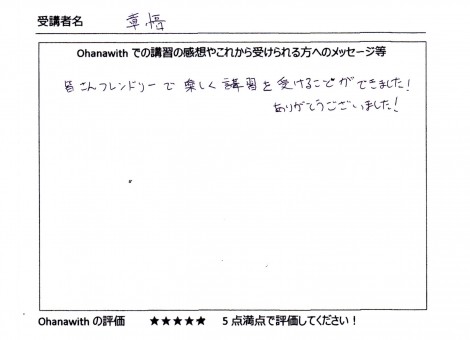 受講者名 章悟
Ohanawith での講習の感想やこれから受けられる方へのメッセージ等
皆さんフレンドリーで楽しく講習を受けることができました!
ありがとうございました!
Ohanawith の評価 ★★★★★ 5点満点で評価してください!